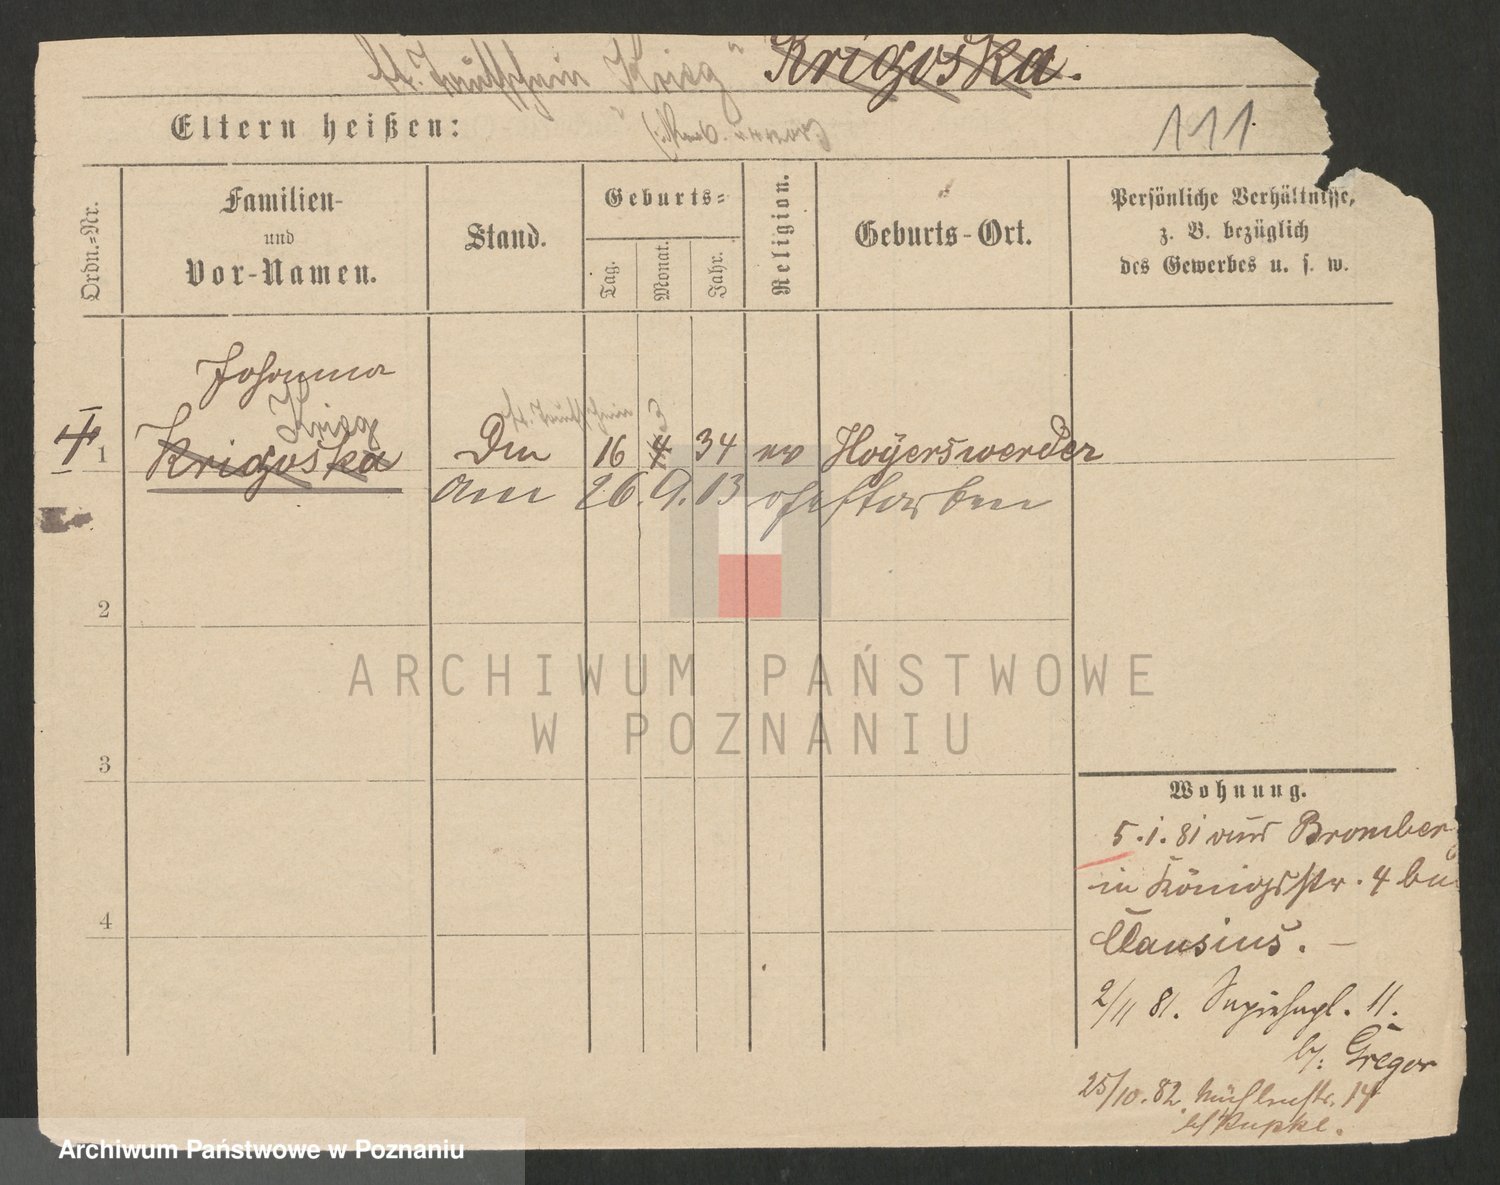 Krieg Krigoska.
Eltern heißen:
111
Ordn.=Nr.
Familien-
und
Vor-Namen.
Stand.
Geburts=
Tag.
Monat.
Jahr.
Religion.
Geburts-Ort.
Persönliche Verhältnisse,
z. B. bezüglich
des Gewerbes u. s. w.
Johanna
Krieg
1 Krigoska 16 4 34 ev Hoyerswerder
am 26.9.13 verstorben
2
3
4
Wohnung.
5.1.81 aus Bromberg
in Königsstr. 4 bei
Clausius. –
2/11 81. Sapiehapl. 11.
b/. Gregor
25/10.82. Mühlenstr. 14
b/ Kupke.
ARCHIWUM PAŃSTWOWE
W POZNANIU
Archiwum Państwowe w Poznaniu